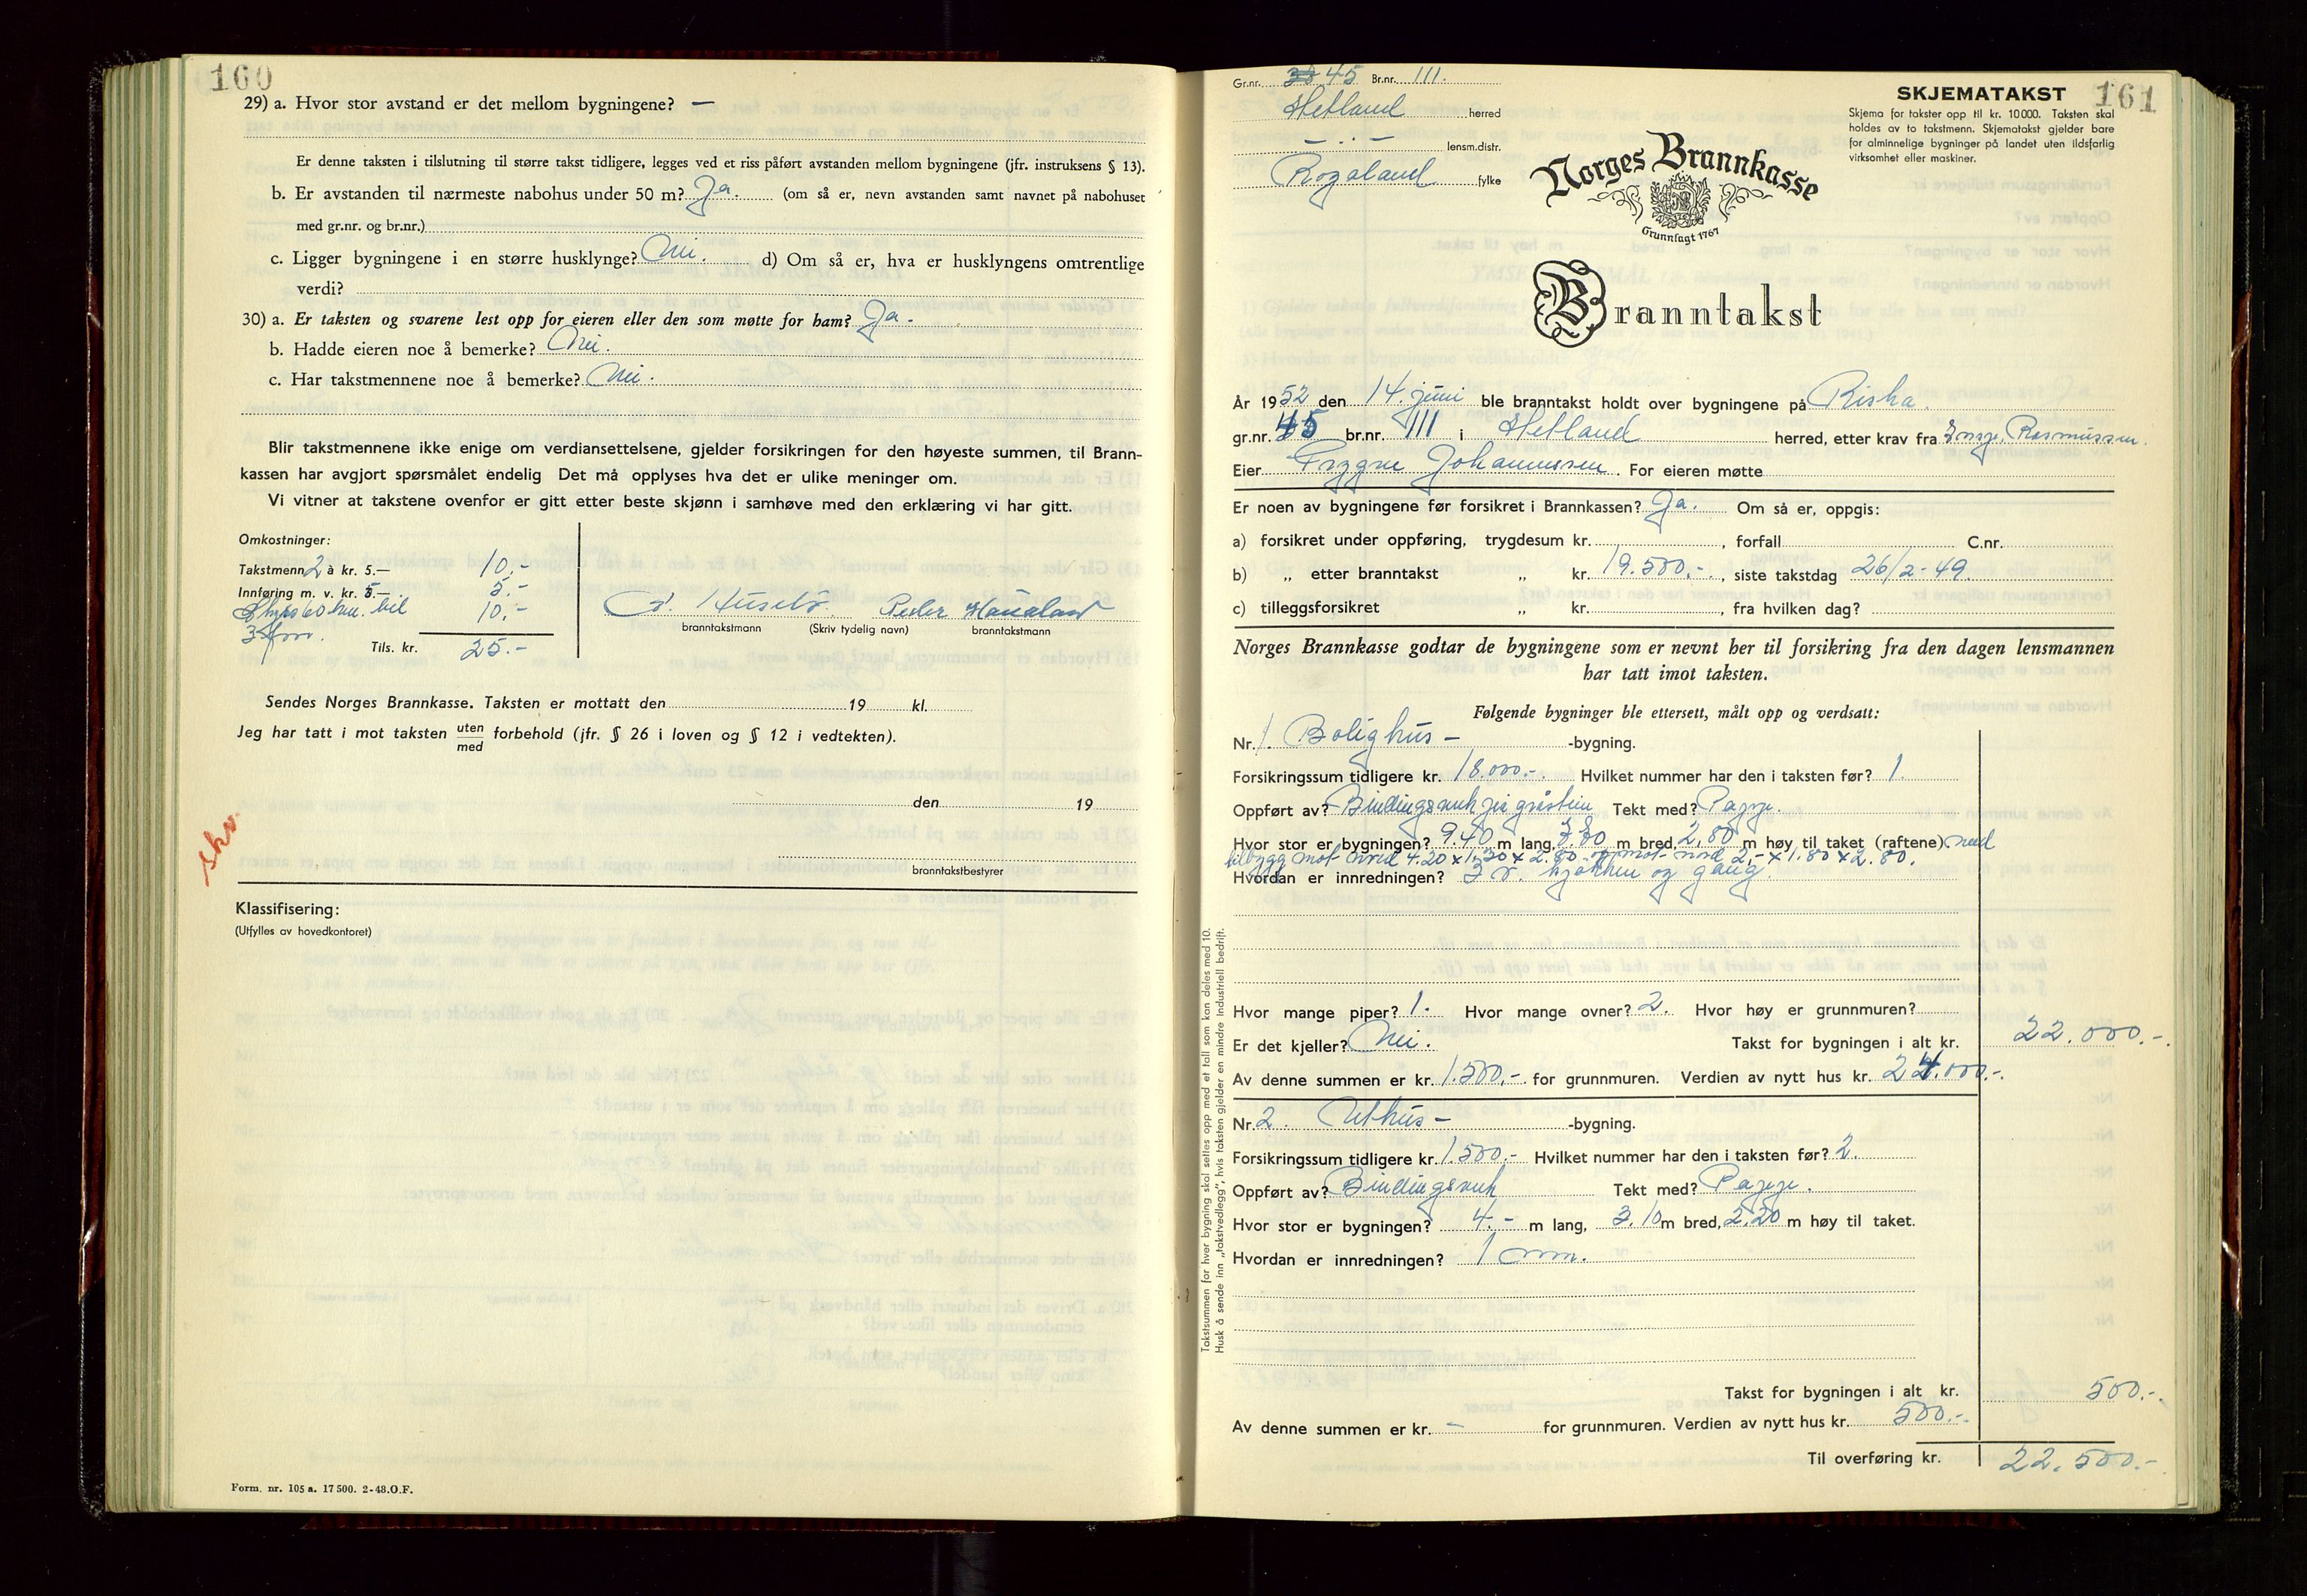 160
29) a. Hvor stor avstand er det mellom bygningene? —
Er denne taksten i tilslutning til større takst tidligere, legges ved et riss påført avstanden mellom bygningene (jfr. instruksens § 13).
b. Er avstanden til nærmeste nabohus under 50 m? Ja. (om så er, nevn avstanden samt navnet på nabohuset
med gr.nr. og br.nr.)
c. Ligger bygningene i en større husklynge? Nei. d) Om så er, hva er husklyngens omtrentlige
verdi?
30) a. Er taksten og svarene lest opp for eieren eller den som møtte for ham? Ja.
b. Hadde eieren noe å bemerke? Nei.
c. Har takstmennene noe å bemerke? Nei.
Blir takstmennene ikke enige om verdiansettelsene, gjelder forsikringen for den høyeste summen, til Brann-
kassen har avgjort spørsmålet endelig Det må opplyses hva det er ulike meninger om.
Vi vitner at takstene ovenfor er gitt etter beste skjønn i samhøve med den erklæring vi har gitt.
Omkostninger:
Takstmenn 2 à kr. 5.— 10.-
Innføring m. v. kr. 5.— 5.-
bil 10.-
Tils. kr. 25.-
Peder Haualand
branntakstmann (Skriv tydelig navn) branntakstmann
Sendes Norges Brannkasse. Taksten er mottatt den 19 kl.
Jeg har tatt i mot taksten uten forbehold (jfr. § 26 i loven og § 12 i vedtekten).
med
den 19
skv.
branntakstbestyrer
Klassifisering:
(Utfylles av hovedkontoret)
Form. nr. 105 a. 17 500. 2-48. O.F.
161
Gr.nr. 38 45 Br.nr. 111.
Hetland herred
— . — lensm.distr.
Rogaland fylke
SKJEMATAKST
Skjema for takster opp til kr. 10 000. Taksten skal
holdes av to takstmenn. Skjematakst gjelder bare
for alminnelige bygninger på landet uten ildsfarlig
virksomhet eller maskiner.
Norges Brannkasse
Grunnlagt 1767
Branntakst
År 1952 den 14. juni ble branntakst holdt over bygningene på Riska.
gr.nr. 45 br.nr. 111 i Hetland herred, etter krav fra Rasmussen.
Eier Trygve Johannessen. For eieren møtte
Er noen av bygningene før forsikret i Brannkassen? Ja. Om så er, oppgis:
a) forsikret under oppføring, trygdesum kr. , forfall C.nr.
b) „ etter branntakst „ kr. 19.500.-, siste takstdag 26/2-49.
c) tilleggsforsikret „ kr. , fra hvilken dag?
Norges Brannkasse godtar de bygningene som er nevnt her til forsikring fra den dagen lensmannen
har tatt imot taksten.
Følgende bygninger ble ettersett, målt opp og verdsatt:
Nr. 1. Bolighus- -bygning.
Forsikringssum tidligere kr. 18.000.- Hvilket nummer har den i taksten før? 1.
Oppført av? Bindingsverk på gråstein Tekt med? Papp.
Hvor stor er bygningen? 9.40 m lang, m bred, 2,80 m høy til taket (raftene) med
tilbygg mot nord 4.20 x 1.30 x 2.80 og mot nord 2,- x 1.80 x 2.80.
Hvordan er innredningen? 3 v. kjøkken og gang.
Hvor mange piper? 1. Hvor mange ovner? 2. Hvor høy er grunnmuren?
Er det kjeller? Nei. Takst for bygningen i alt kr. 22.000.-
Av denne summen er kr. 1.500.- for grunnmuren. Verdien av nytt hus kr. 24.000.-.
Nr. 2. Uthus- -bygning.
Forsikringssum tidligere kr. 1.500.- Hvilket nummer har den i taksten før? 2.
Oppført av? Bindingsverk Tekt med? Papp.
Hvor stor er bygningen? 4.- m lang, 3.10 m bred, 2.20 m høy til taket.
Hvordan er innredningen? 1 rom.
Takst for bygningen i alt kr. 500.-
Av denne summen er kr. - for grunnmuren. Verdien av nytt hus kr. 500.-
Til overføring kr. 22.500.-
Takstsummen for hver bygning skal settes opp med et tall som kan deles med 10.
Husk å sende inn „takstvedlegg", hvis taksten gjelder en mindre industriell bedrift.